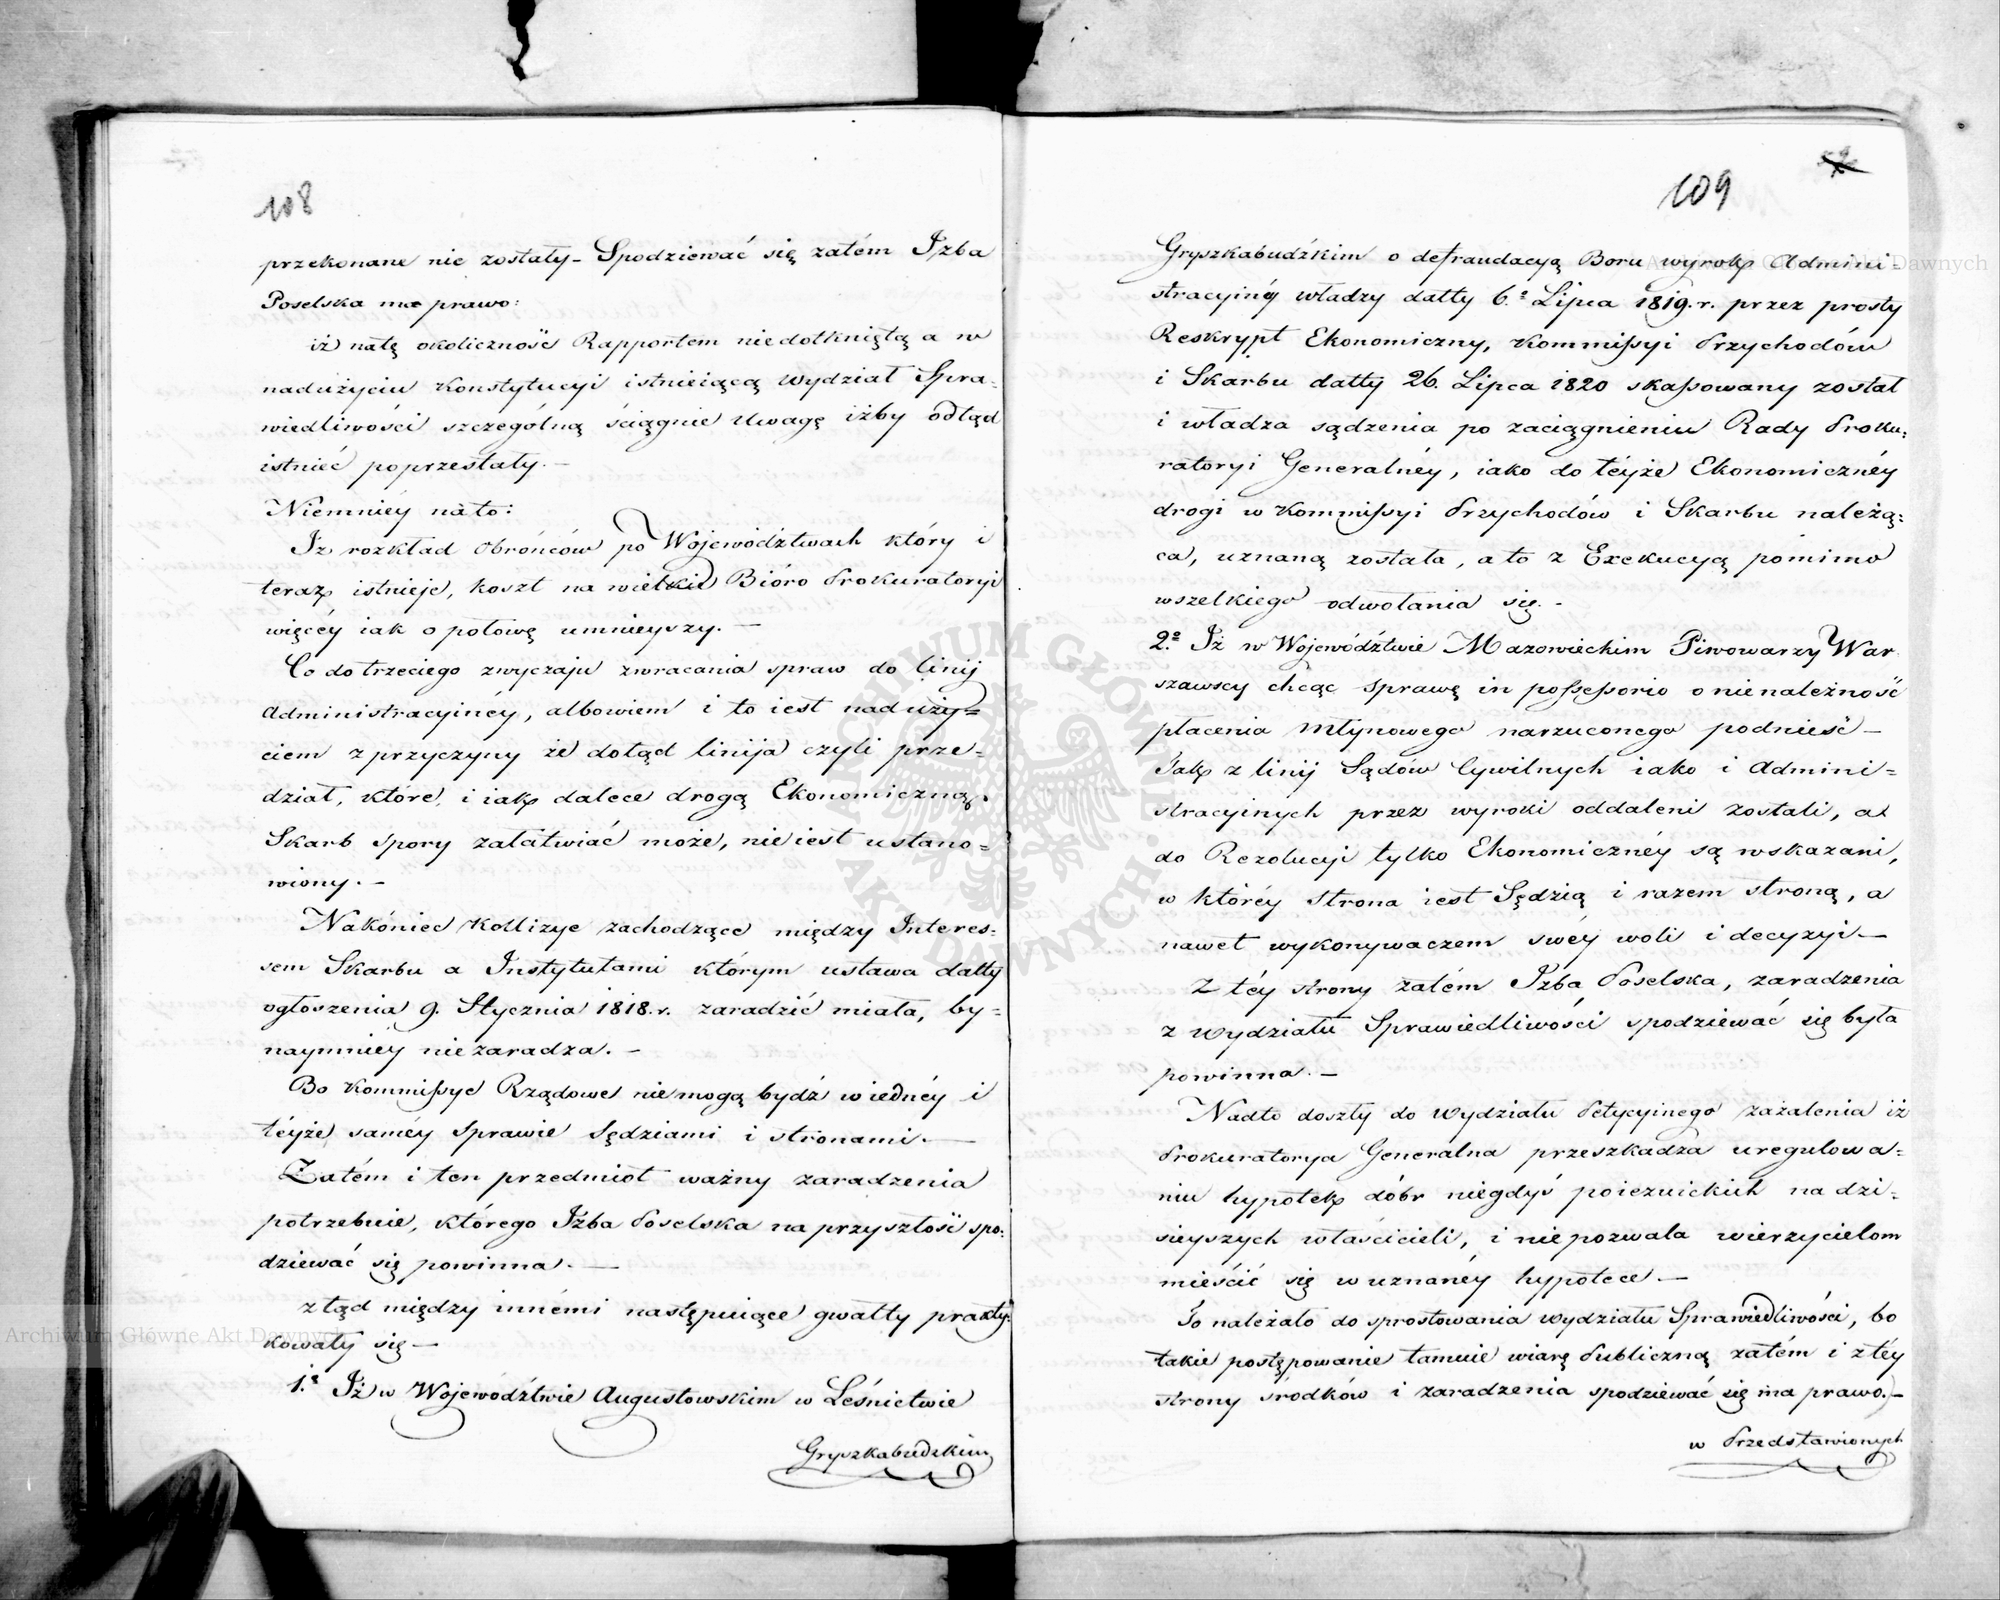 108
przekonane nie zostały – Spodziewać się zatém Izba
Poselska ma prawo:
iż natę okoliczność Rapportem niedotkniętą a w
nadużyciu Konstytucyi istnieiącą Wydział Spra-
wiedliwości szczególną ściągnie Uwagę iżby odtąd
istnieć poprzestały. –
Niemniéy nato:
Iż rozkład Obrońców po Województwach który i
teraz istnieje, koszt na wielkie Bióro Prokuratoryi
więcéy iak o połowę umnieyszy. –
Co do trzeciego zwyczaju zwracania spraw do linij
Administracyinéy, albowiem i to iest naduży=
ciem z przyczyny że dotąd linija czyli prze=
dział, które, i iak dalece drogą Ekonomiczną
Skarb spory załatwiać może, nie iest ustano=
wiony. –
Nakóniec Kollizye zachodzące między Interes-
sem Skarbu a Instytutami którym ustawa datty
ogłoszenia 9. Stycznia 1818. r. zaradzić miała, by=
naymniéy niezaradza. –
Bo Kommissye Rządowe niemogą bydź w iednéy i
téyże saméy Sprawie Sędziami i stronami. –
Zatém i ten przedmiot ważny zaradzenia
potrzebuie, którego Izba Poselska na przyszłość spo-
dziewać się powinna. –
ztąd między innémi następuiące gwałty prakty-
kowały się –
1.º Iż w Województwie Augustowskim w Leśnictwie
Gryszkabudzkim
109
Gryszkabudźkim o defraudacyą Boru wyrok Admini-
stracyiney władzy datty 6.º Lipca 1819. r. przez prosty
Reskrypt Ekonomiczny, Kommissyi Przychodów
i Skarbu datty 26. Lipca 1820 skassowany został
i władza sądzenia po zaciągnieniu Rady Proku-
ratoryi Generalnéy, iako do téyże Ekonomicznéy
drogi w Kommissyi Przychodów i Skarbu należą-
ca, uznaną została, a to z Exekucyą pomimo
wszelkiego odwołania się. –
2.º Iż w Województwie Mazowieckim Piwowarzy War
szawscy chcąc Sprawę in possessorio o nienależność
płacenia Młynowego narzuconego podnieść –
Tak z linij Sądów Cywilnych iako i Admini=
stracyinych przez wyroki oddaleni zostali, a
do Rezolucyi tylko Ekonomicznéy są wskazani,
w któréy Strona iest Sędzią i razem stroną, a
nawet wykonywaczem swéy woli i decyzyi –
Z téy strony zatém Izba Poselska, zaradzenia
z Wydziału Sprawiedliwości spodziewać się była
powinna. –
Nadto doszły do Wydziału Petycyinego zażalenia iż
Prokuratorya Generalna przeszkadza uregulowa=
niu hypotek dóbr niegdyś poiezuickich na dzi=
sieyszych właścicieli, i niepozwala wierzycielom
mieścić się w uznanéy hypotece –
To należało do sprostowania Wydziału Sprawiedliwości, bo
takie postępowanie tamuie wiarę Publiczną zatém i z téy
strony środków i zaradzenia spodziewać się ma prawo. –
w Przedstawionych
Archiwum Główne Akt Dawnych
Archiwum Główne Akt Dawnych
ARCHIWUM GŁÓWNE AKT DAWNYCH